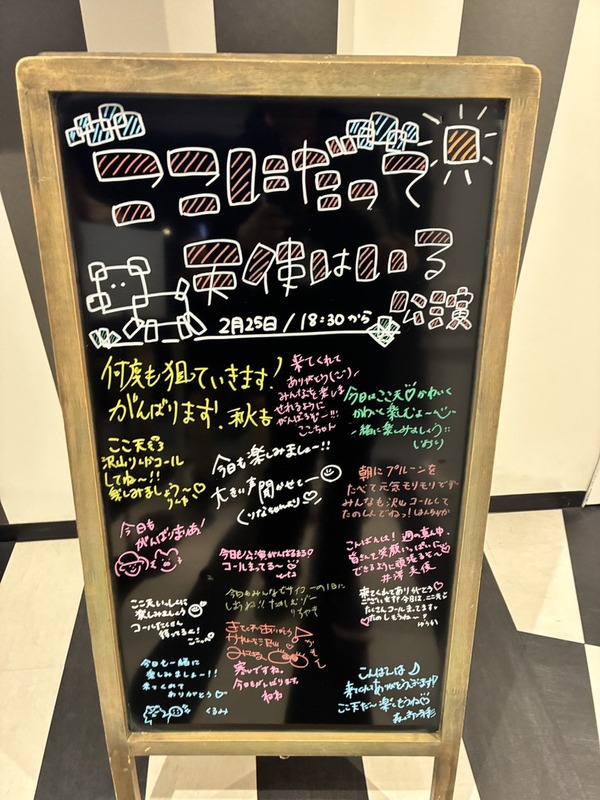 ここにだって
天使はいる
公演
2月25日/18:30から
何度も狙っていきます!
がんばります!秋吉
来てくれて
ありがとう
みんなを楽しま
せれるように
がんばるぞー!!!
ここちゃん
今日はここ天♡かわいく
かわいく楽しむょ〜
一緒に楽しみましょう
しおり
ここ天
沢山りんかコール
してね〜!!
楽しみましょう〜♡
今日も楽しみましょー!!
大きい声聞かせてー
朝にプルーンを
たべて元気モリモリです
みんなも沢山コールして
たのしんでねっ!
今日も
がんばりまぁ!
今日も公演がんばるまる
コールまってる〜♡
こんばんは!週の真ん中、
皆さんを笑顔いっぱいに
できるように頑張るぞ
井澤美優
ここ天いっしょに
楽しみましょう
コールたくさん
待ってるよ!
今日もみんなでサイコーの1日に
しようね!!たのしむゾ
りちゃや
来てくれてありがとう♡
ございます!今日は、ここ天
たくさんコールまってます
たのしもうね〜
ゆうか
きてくれてありがとう
寒いですね。
今日もがんばります。
ねね
今日も一緒に
楽しみましょー!!
来てくれて
ありがとう♡
くるみ
こんばんは♪
来てくれてありがとうございます!
ここ天だ〜楽しもうね♡